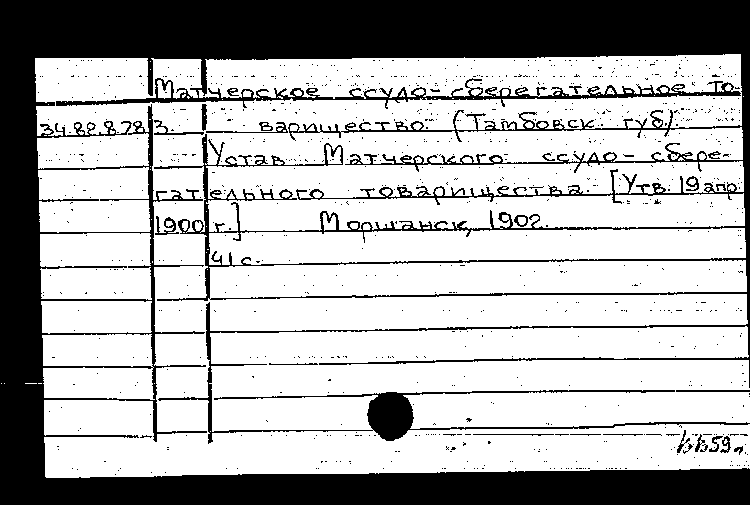 Матчерское ссудо-сберегательное то-
34.82.8.783. варищество (Тамбовск. губ)
Устав Матчерского ссудо-сбере-
гательного товарищества. [Утв. 19 апр.
1900 г.] Моршанск, 1902.
41 с.